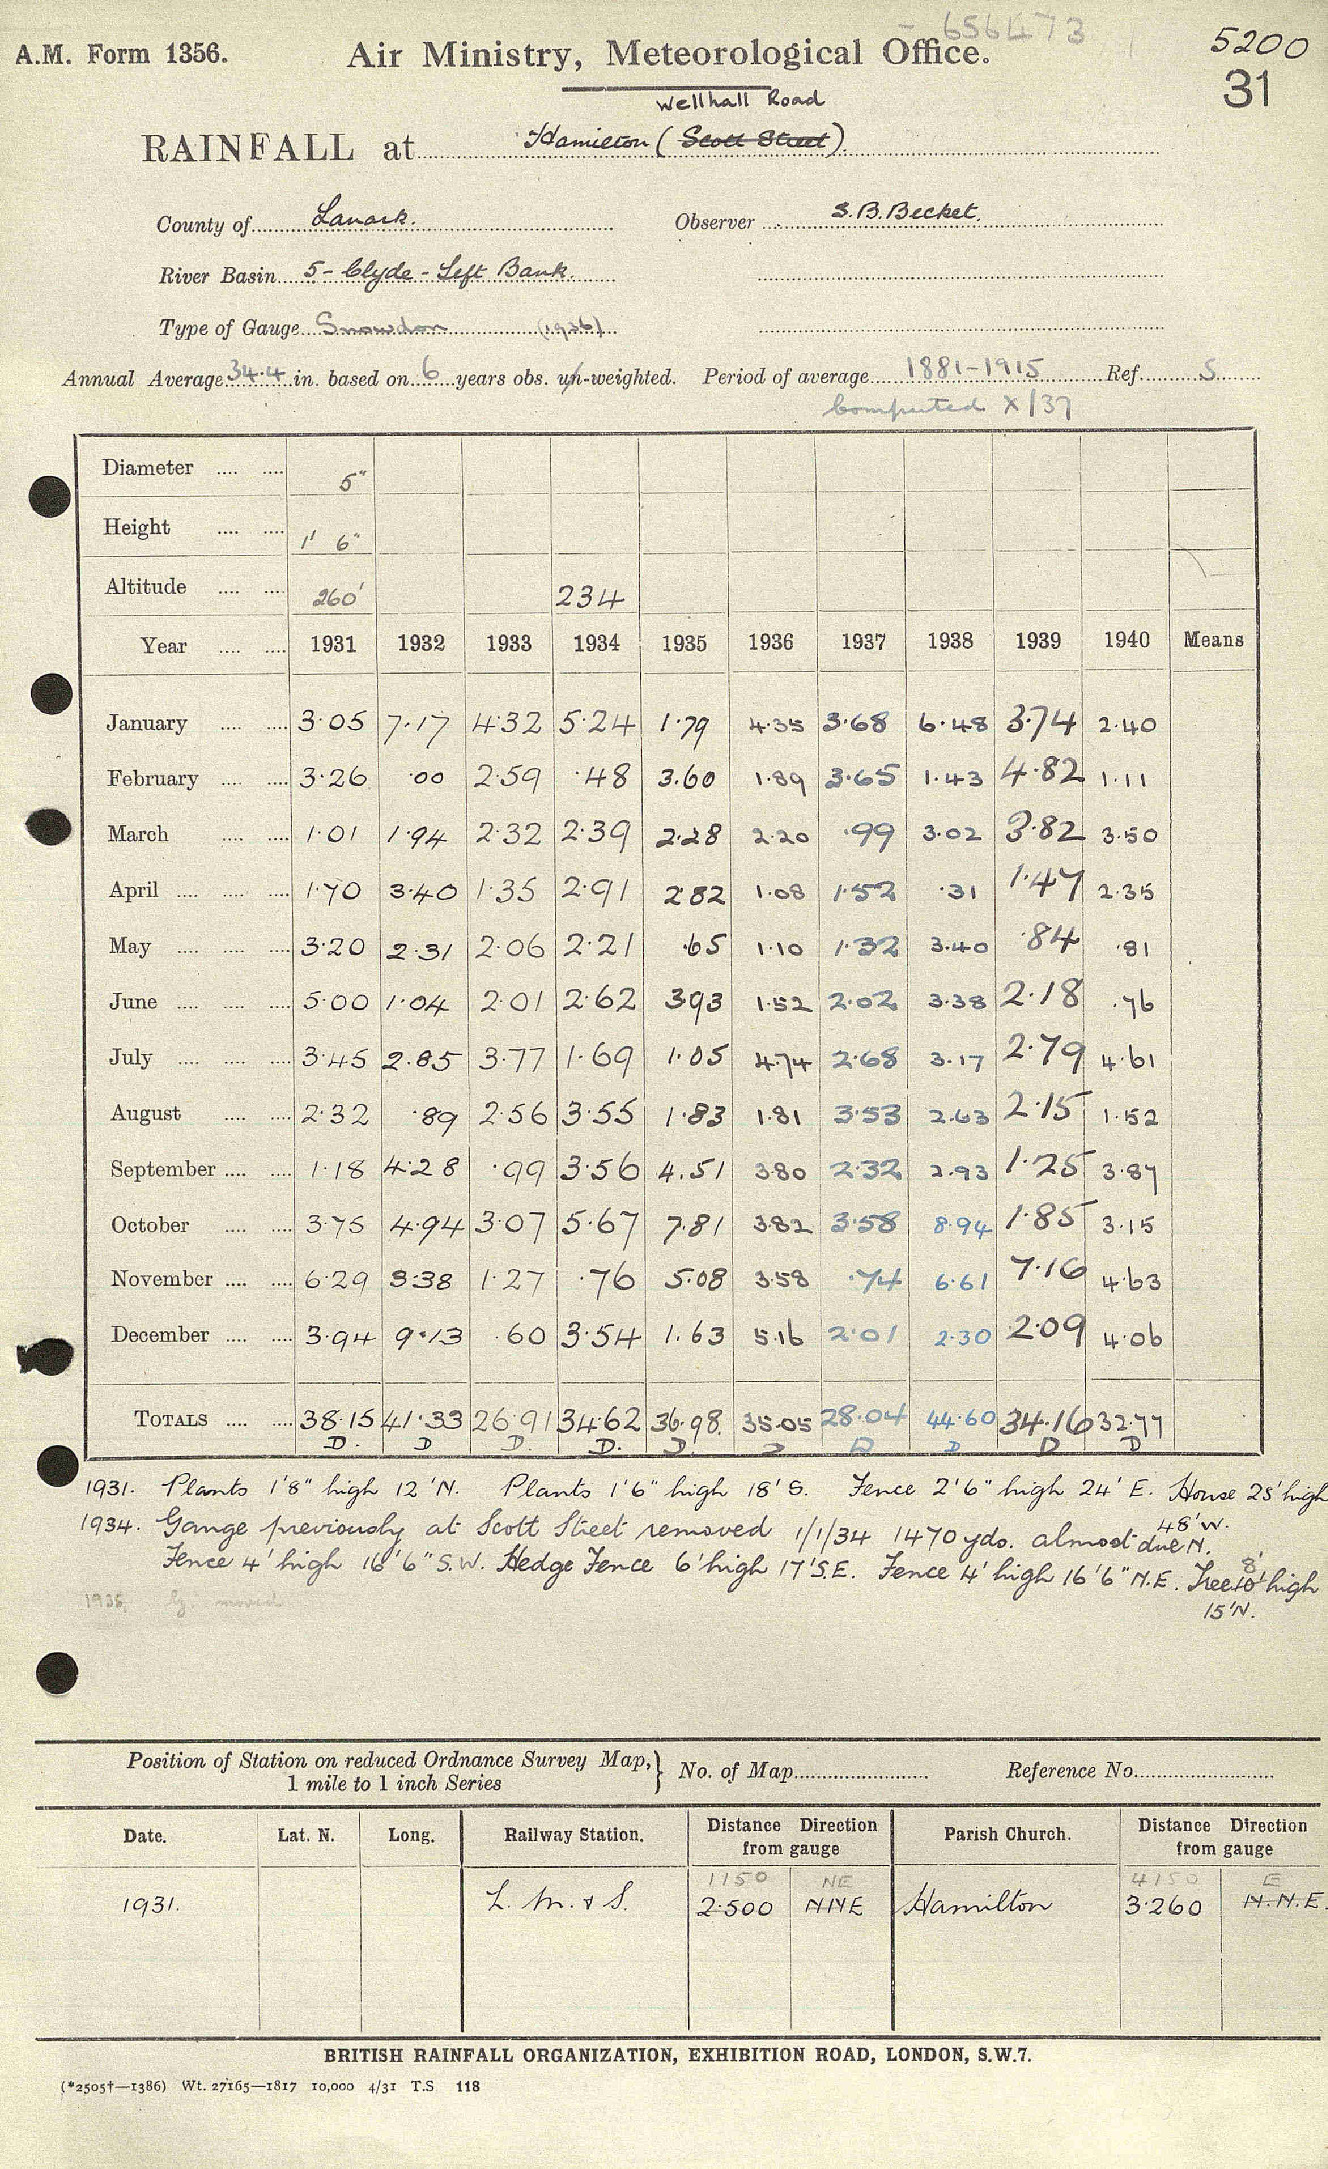 656473
A.M. Form 1356. Air Ministry, Meteorological Office. 5200
31
Wellhall Road
RAINFALL at Hamilton (Scott Street)
County of Lanark. Observer S.B. Becket.
River Basin 5 - Clyde - Left Bank.
Type of Gauge Snowdon (1936)
Annual Average 34.4 in. based on 6 years obs. un-weighted. Period of average 1881-1915 Ref. S
Computed X/37
Diameter 5"
Height 1' 6"
Altitude 260' 234
Year 1931 1932 1933 1934 1935 1936 1937 1938 1939 1940 Means
January 3.05 7.17 4.32 5.24 1.79 4.35 3.68 6.48 3.74 2.40
February 3.26 .00 2.59 .48 3.60 1.89 3.65 1.43 4.82 1.11
March 1.01 1.94 2.32 2.39 2.28 2.20 .99 3.02 3.82 3.50
April 1.70 3.40 1.35 2.91 2.82 1.08 1.52 .31 1.47 2.35
May 3.20 2.31 2.06 2.21 .65 1.10 1.32 3.40 .84 .81
June 5.00 1.04 2.01 2.62 3.93 1.52 2.02 3.38 2.18 .76
July 3.45 2.85 3.77 1.69 1.05 4.74 2.68 3.17 2.79 4.61
August 2.32 .89 2.56 3.55 1.83 1.81 3.53 2.63 2.15 1.52
September 1.18 4.28 .99 3.56 4.51 3.80 2.32 2.93 1.25 3.87
October 3.75 4.94 3.07 5.67 7.81 3.82 3.58 8.94 1.85 3.15
November 6.29 3.38 1.27 .76 5.08 3.58 .74 6.61 7.16 4.63
December 3.94 9.13 .60 3.54 1.63 5.16 2.01 2.30 2.09 4.06
TOTALS 38.15 41.33 26.91 34.62 36.98 35.05 28.04 44.60 34.16 32.77
D. D D. D. D D D D D D
1931. Plants 1'8" high 12'N. Plants 1'6" high 18'S. Fence 2'6" high 24'E. House 25'high
48'W.
1934. Gauge previously at Scott Street removed 1/1/34 1470 yds. almost due N.
Fence 4' high 16'6" S.W. Hedge Fence 6' high 17'S.E. Fence 4' high 16'6" N.E. Tree 10' 8' high
15'N.
1935. moved
Position of Station on reduced Ordnance Survey Map, 1 mile to 1 inch Series } No. of Map Reference No.
Date. Lat. N. Long. Railway Station. Distance from gauge Direction Parish Church. Distance from gauge Direction
1150 NE 4150 E
1931. L. M. & S. 2.500 NNE Hamilton 3.260 N.N.E.
BRITISH RAINFALL ORGANIZATION, EXHIBITION ROAD, LONDON, S.W.7.
(*2505†—1386) Wt. 27165—1817 10,000 4/31 T.S 118